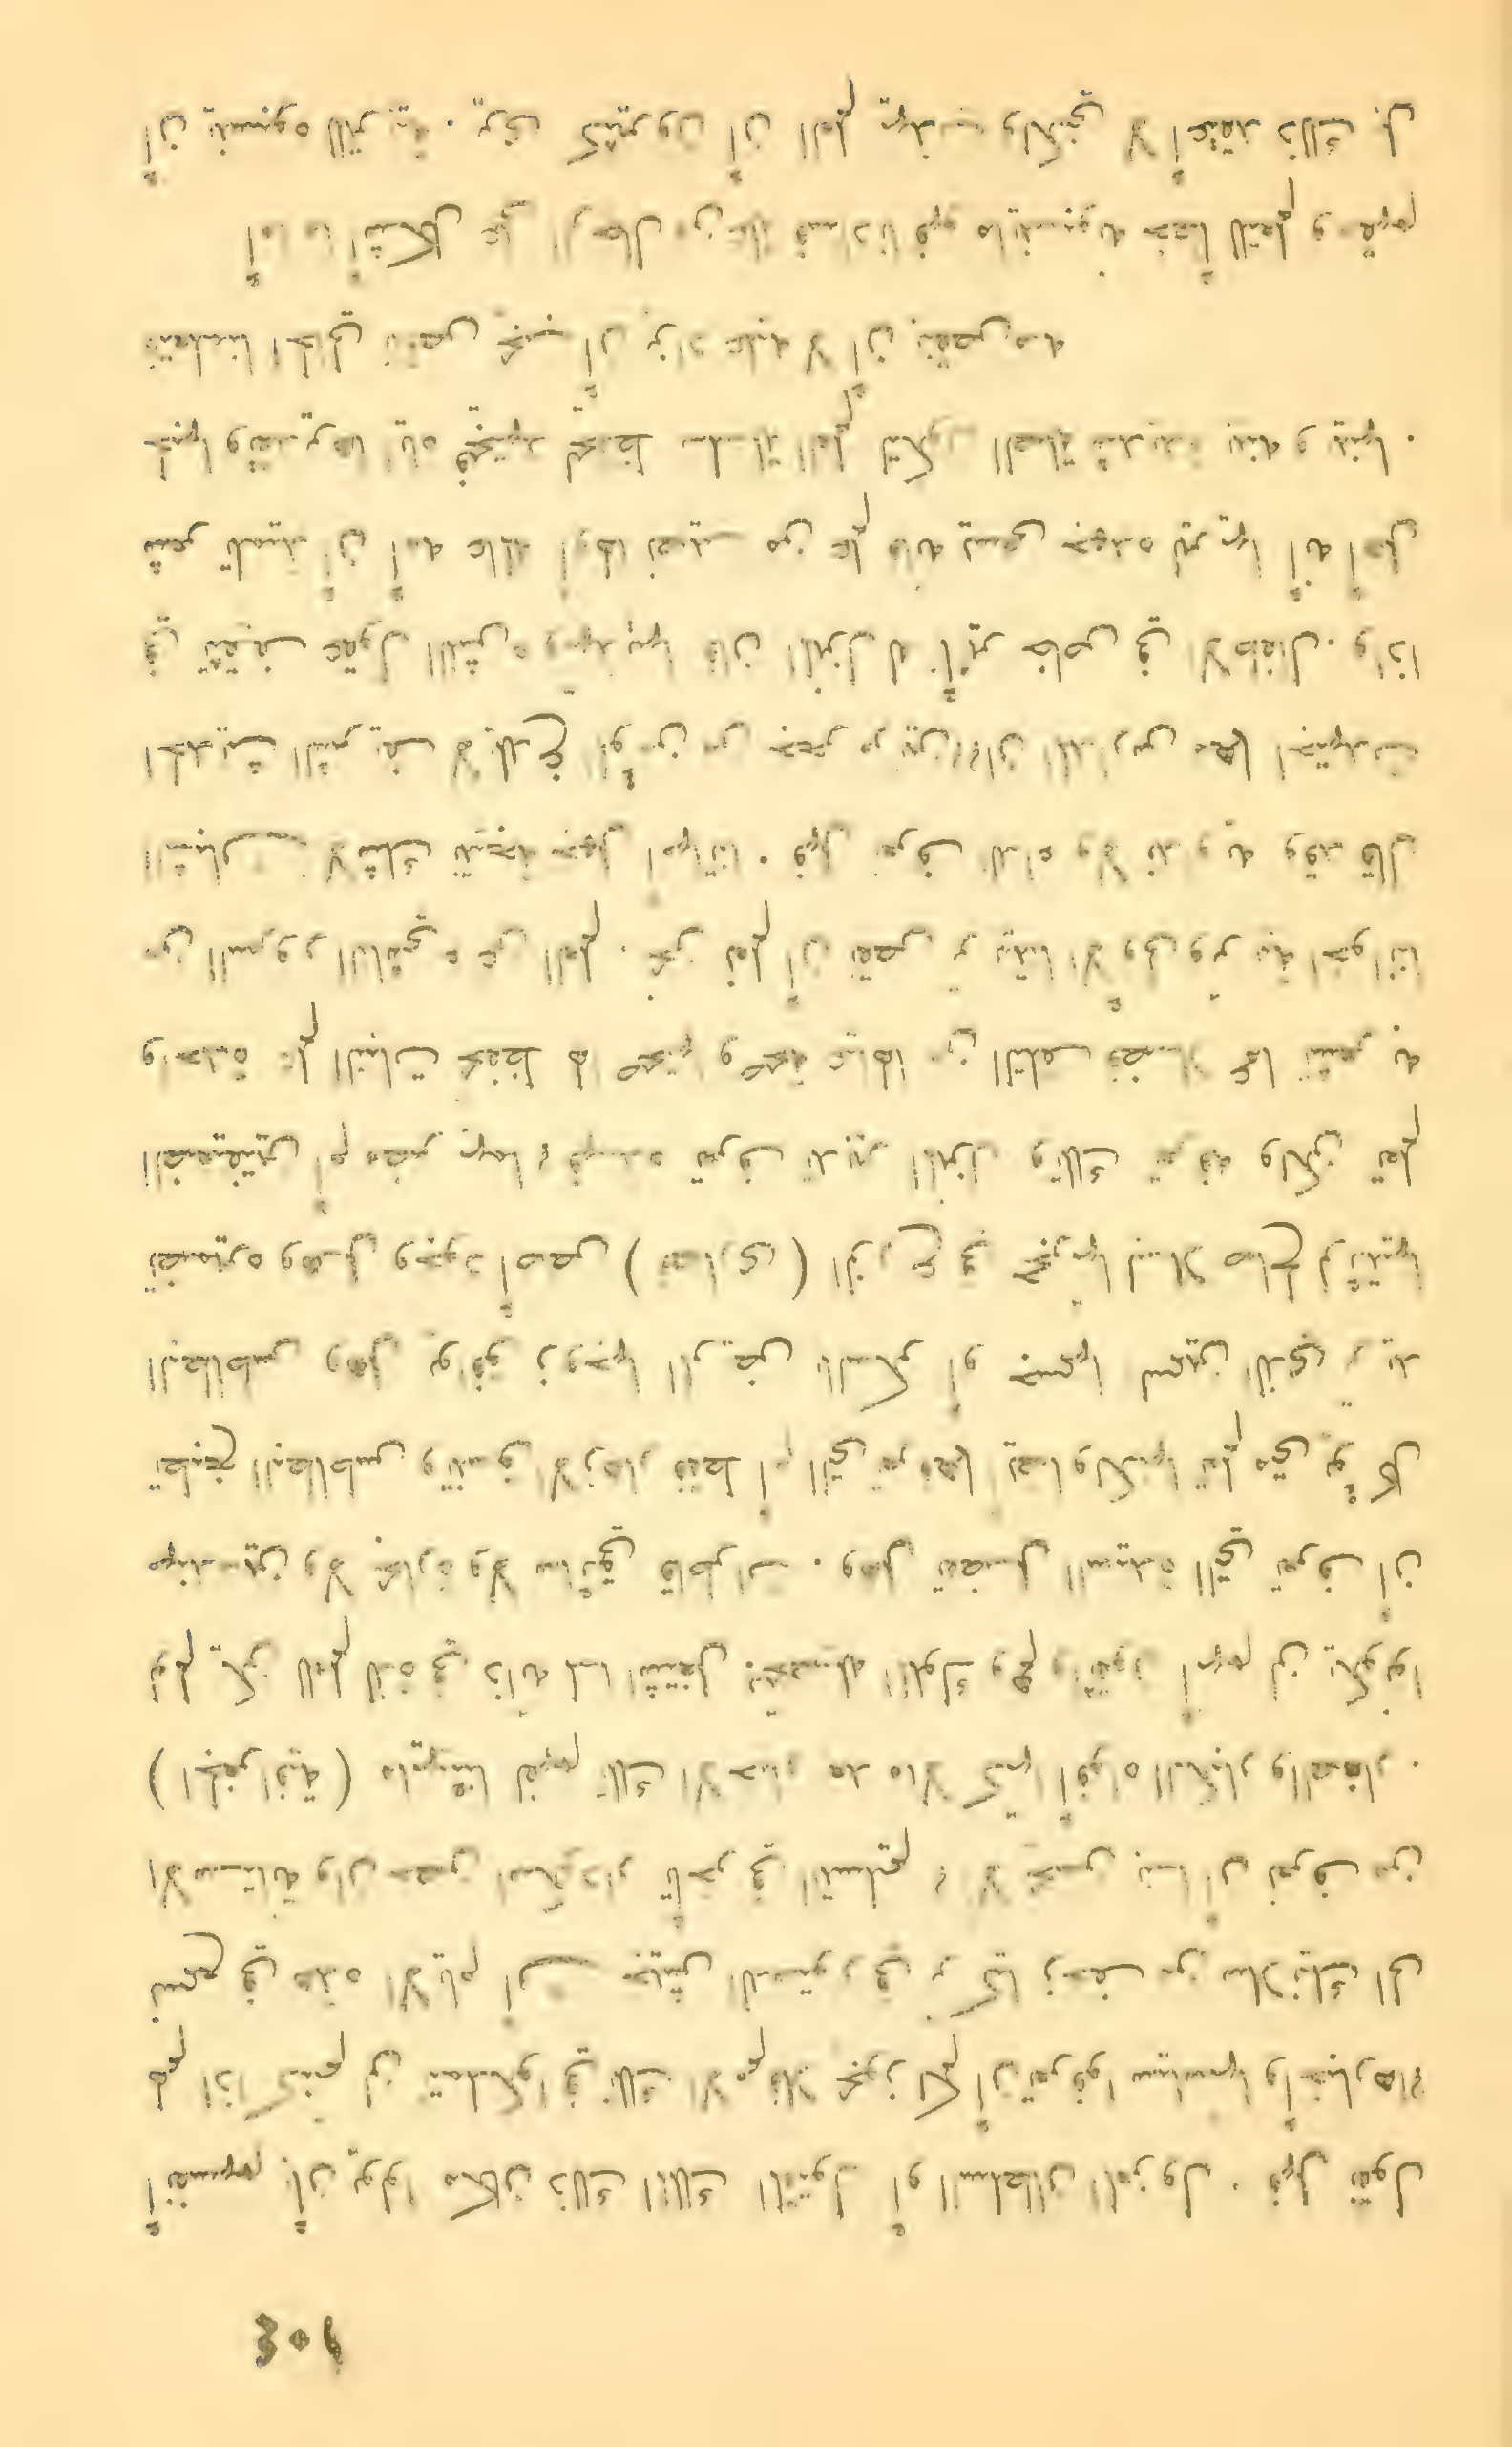 ١٠٤
أنفسهم بأن يولوا مكان ذلك الملك المقتول أو السلطان المعزول . فهل تقول
لهم اذا كنتم لن تملكوا في تلك الامم فلا يجوز لكم أن تعرفوا سياستها وأخبارها؟
في هذه الايام جيش الدستور تركيا زحف من سلانيك الى
الاستانة وان حصون اسكودار في التسليم ؛ ألا يحسن بنا أن نعرف من
( الجغرافية ) ما يهيئنا لفهم تلك الاخبار أفواه الكبار والصغار .
ولم يكن للعلم لذة في ذاته لما اشتغل بتحصيله الملوك وهم واثقون أنهم لن يكونوا
مهندسين ولا بحارة ولا سائقي قاطرات . وهل السيدة التي تعرف أن
تطبخ البطاطس الازهار فقط أم التي تعرفها ايضا ولكنها تعلم متى يؤكل
البطاطس وهل يوافق زوجها المريض بالسكر أو جسمها السمين الذي تريد
تضميره وهل وجود أصص ( قصاري ) الزرع في حجرتها ليلا صالح لرئتيها
الضعيفتين أم مضر بهما ؛ فهذه تعرف تدبير المنزل وتلك تعرفه ولكن تعلم
واحدة علم النبات يحفظ لها صحتها وصحة عائلتها من التلف فضلا عما تشعر به
من السرور العلم . نحن نعلم أن نقص
الشبان لا شك جهل امهاتنا . فهل نعرف الداء ولا نداويه وقد قيل
الحديث الشريف لا يلدغ المؤمن من جحر مرتين؟ وان المدارس مهما اجتهدت
في تثقيف عقول النشء وتهذيبها فان للمنزل تأثير خاص في الاطفال . واذا
شعر التلميذ أن أمه من علم فانه يسعى جهده ليريها أنه أهل
لحبها وتقديرها اياه فيجتهد لحفظ سلسلة العلم لتكون الصلة شديدة بينه وبينها .
فتعليمنا الحالي ناقص يجب أن يزاد عليه لا أن ينقص منه
أما ما أشكل على الرجال من علة فسادنا فهو ما ينسبونه خطأ للتعليم وحقهم
أن ينسبوه للتربية . يرى كثيرون أن العلم يهذب ولكني لا أعتقد ذلك بل